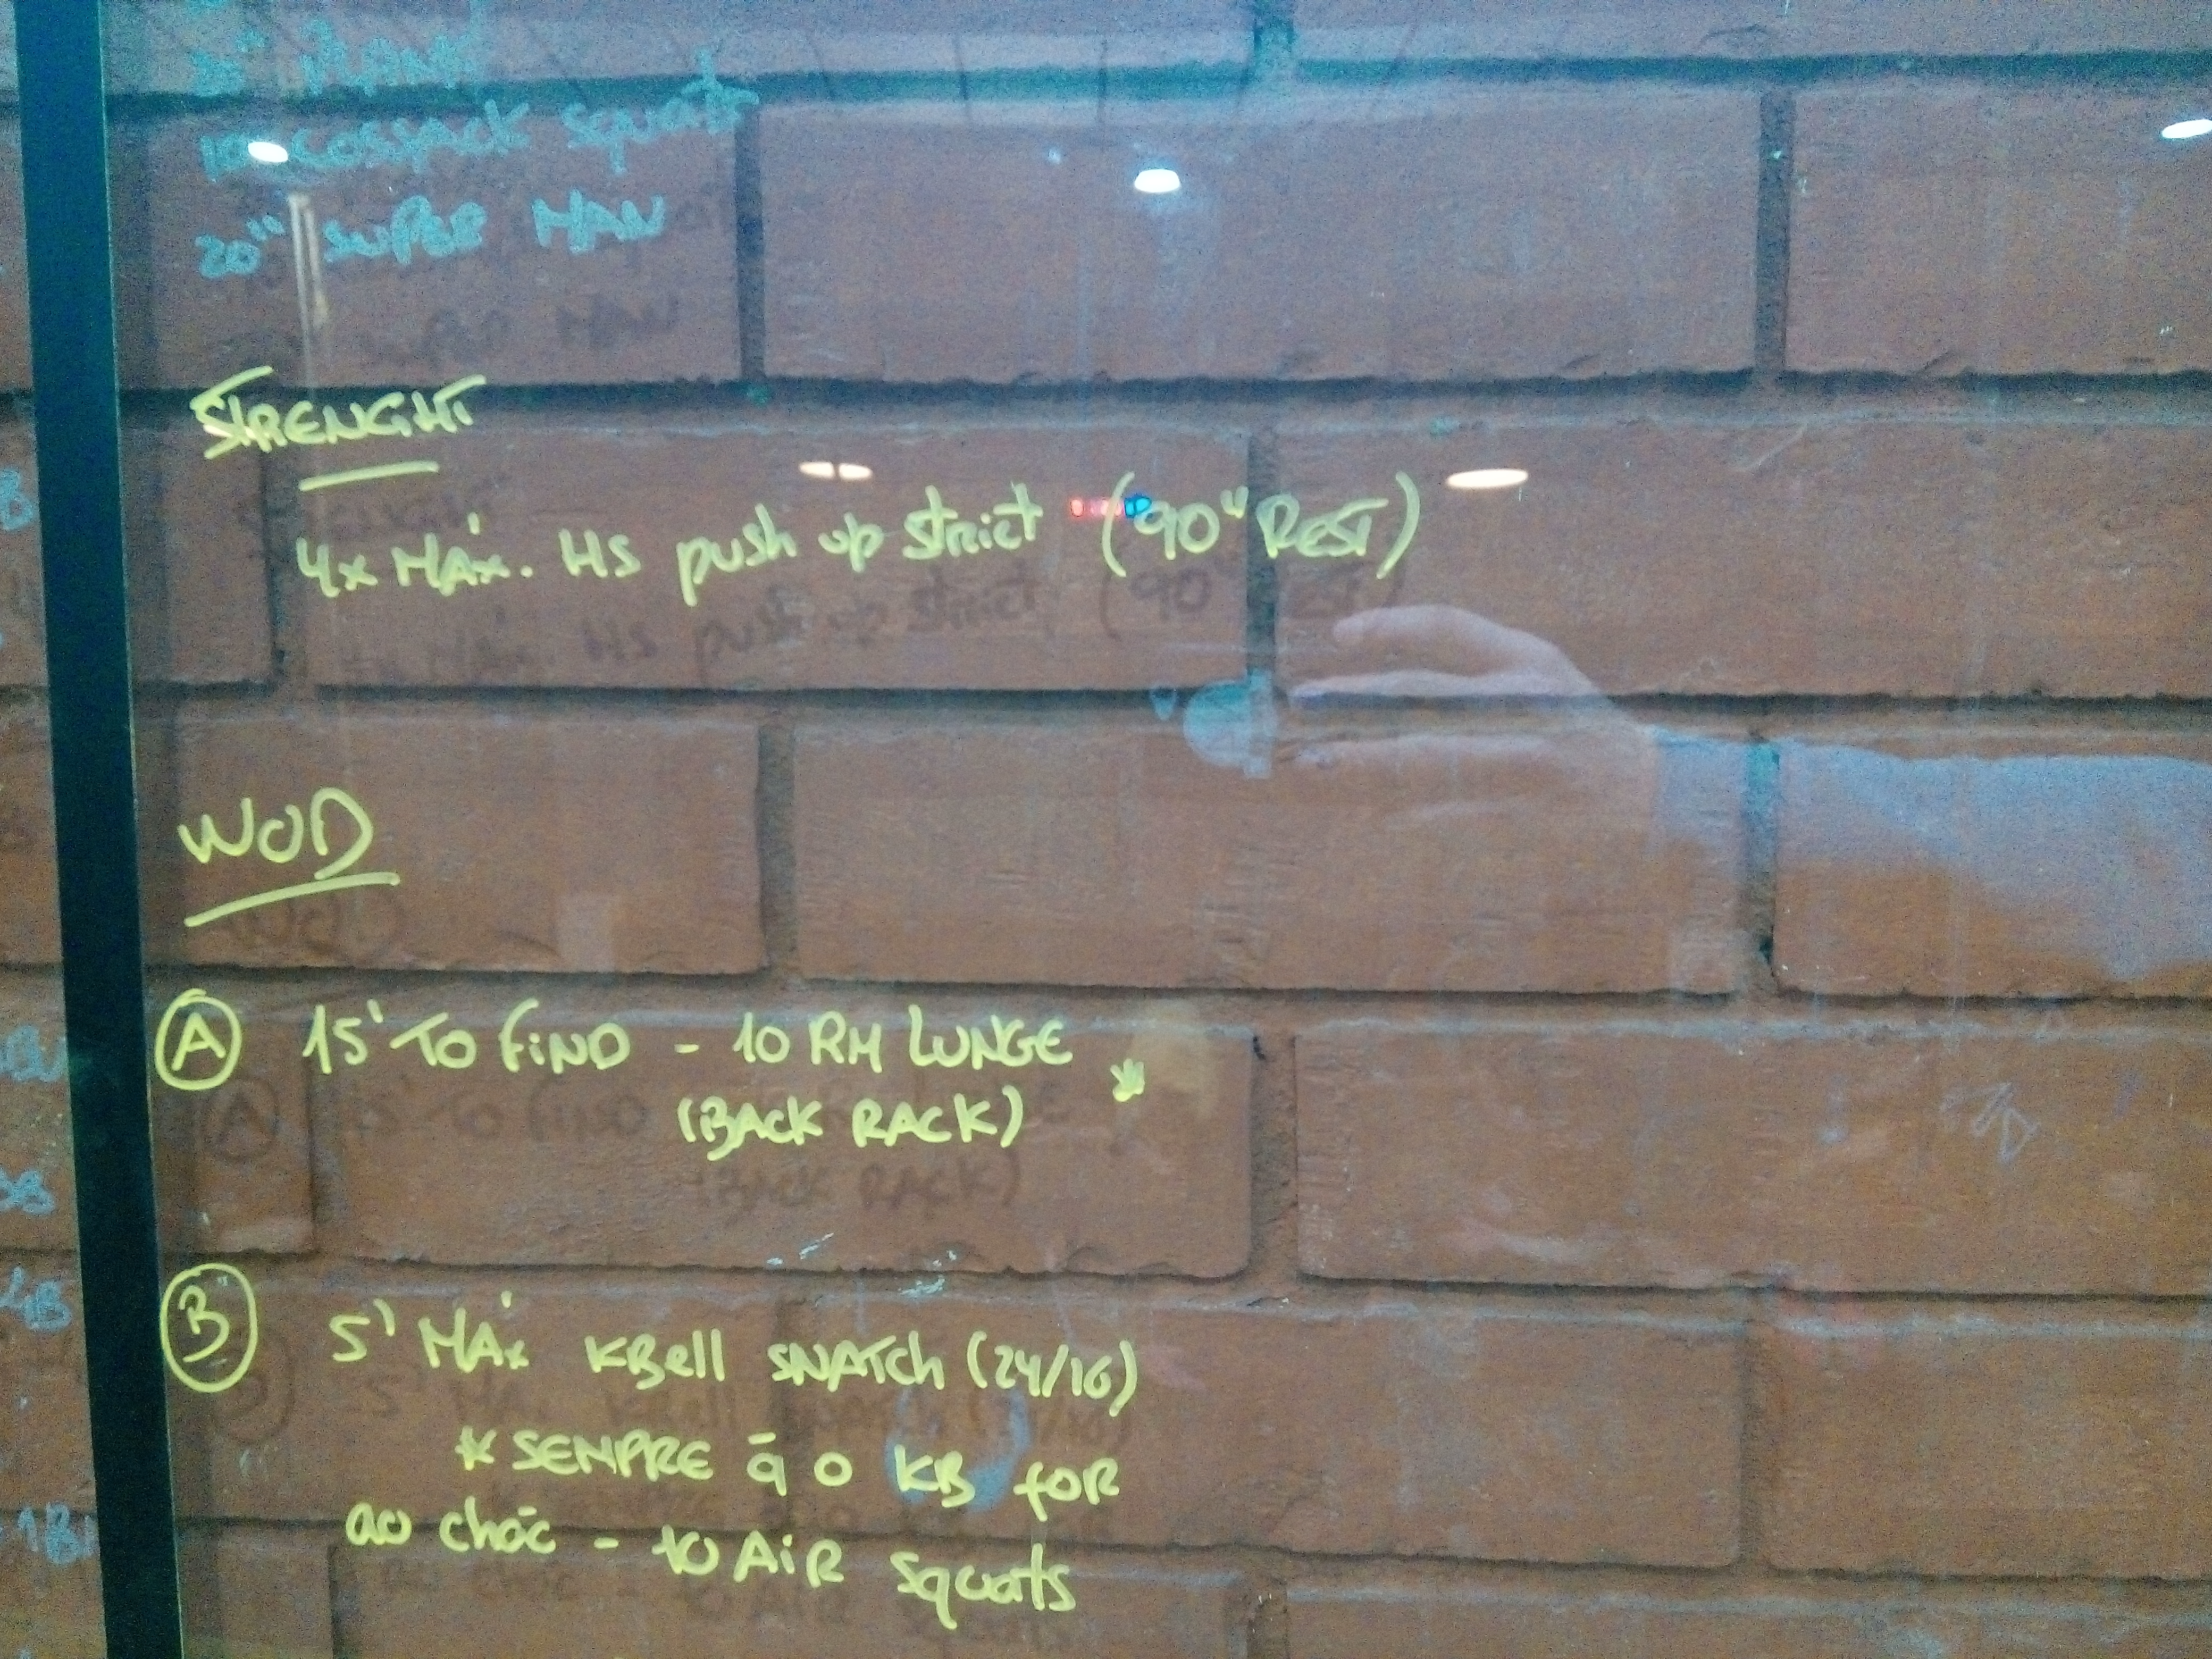 PLANK
10 COSSACK Squats
SUPER MAN
STRENGHT
4x MÁx. HS push up strict (90" REST)
WOD
A 15' TO FIND - 10 RM LUNGE *
(BACK RACK)
B 5' MÁx KBell SNATCH (24/16)
* SEMPRE q O KB for
ao chão - 10 AiR Squats